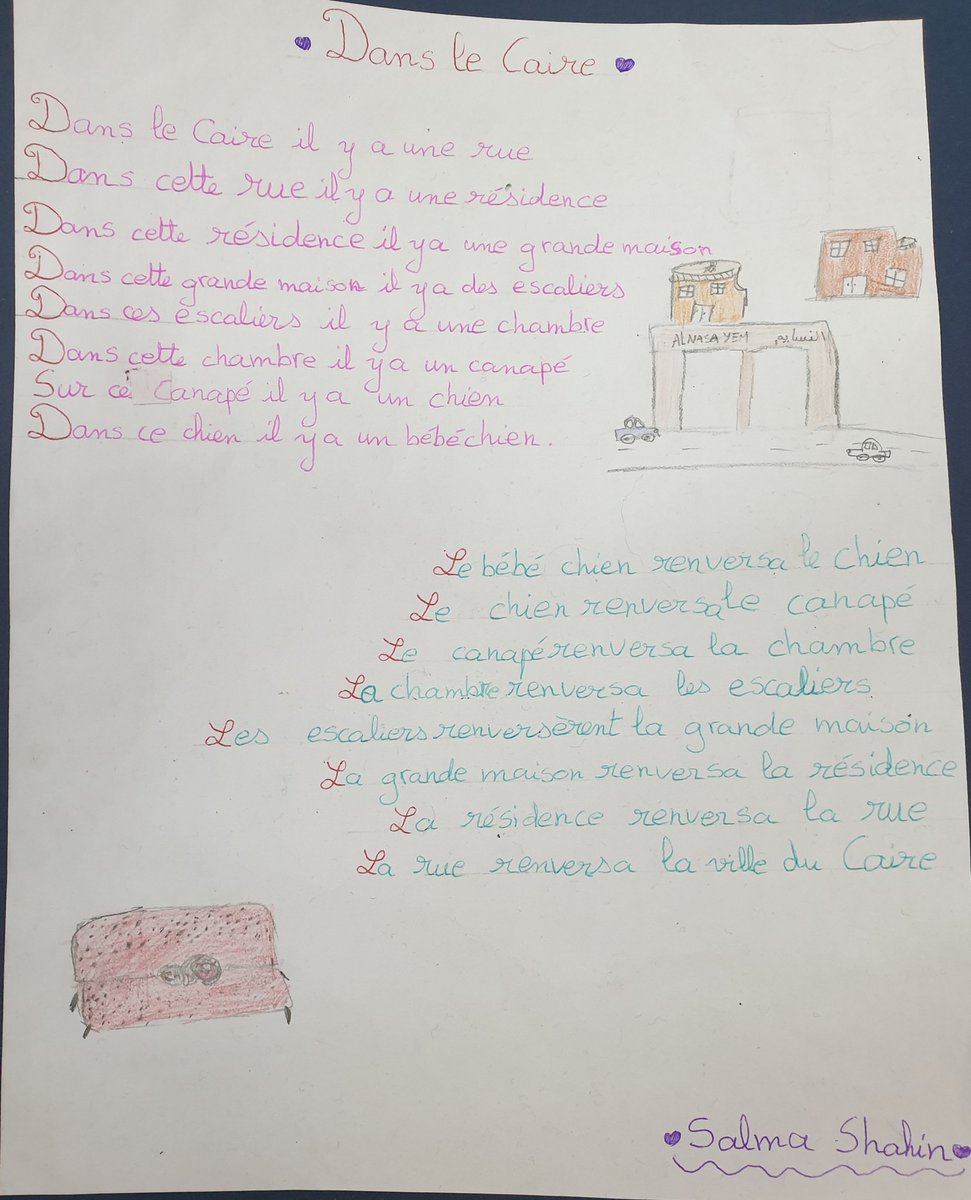 Dans le Caire
Dans le Caire il y a une rue
Dans cette rue il y a une résidence
Dans cette résidence il y a une grande maison
Dans cette grande maison il y a des escaliers
Dans ces escaliers il y a une chambre
Dans cette chambre il ya un canapé
Sur ce Canapé il y a un chien
Dans ce chien il y a un bébé chien.
ALNASAYEM النسايم
Le bébé chien renversa le chien
Le chien renversa le canapé
Le canapé renversa la chambre
La chambre renversa les escaliers
Les escaliers renversèrent la grande maison
La grande maison renversa la résidence
La résidence renversa la rue
La rue renversa la ville du Caire
Salma Shahin